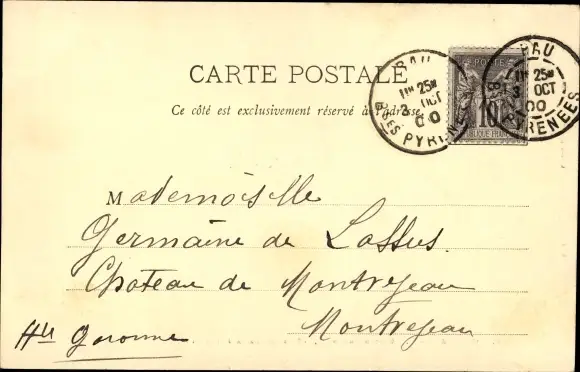 CARTE POSTALE
Ce côté est exclusivement réservé à l'adresse
PAU
11H 25M
3 OCT
00
BSES PYRENEES
POSTE
10
RÉPUBLIQUE FRANÇAISE
PAU
11H 25M
3 OCT
00
BSES PYRENEES
Mademoiselle
Germaine de Lassus.
Chateau de Montrejeau
Montrejeau
Hte Garonne